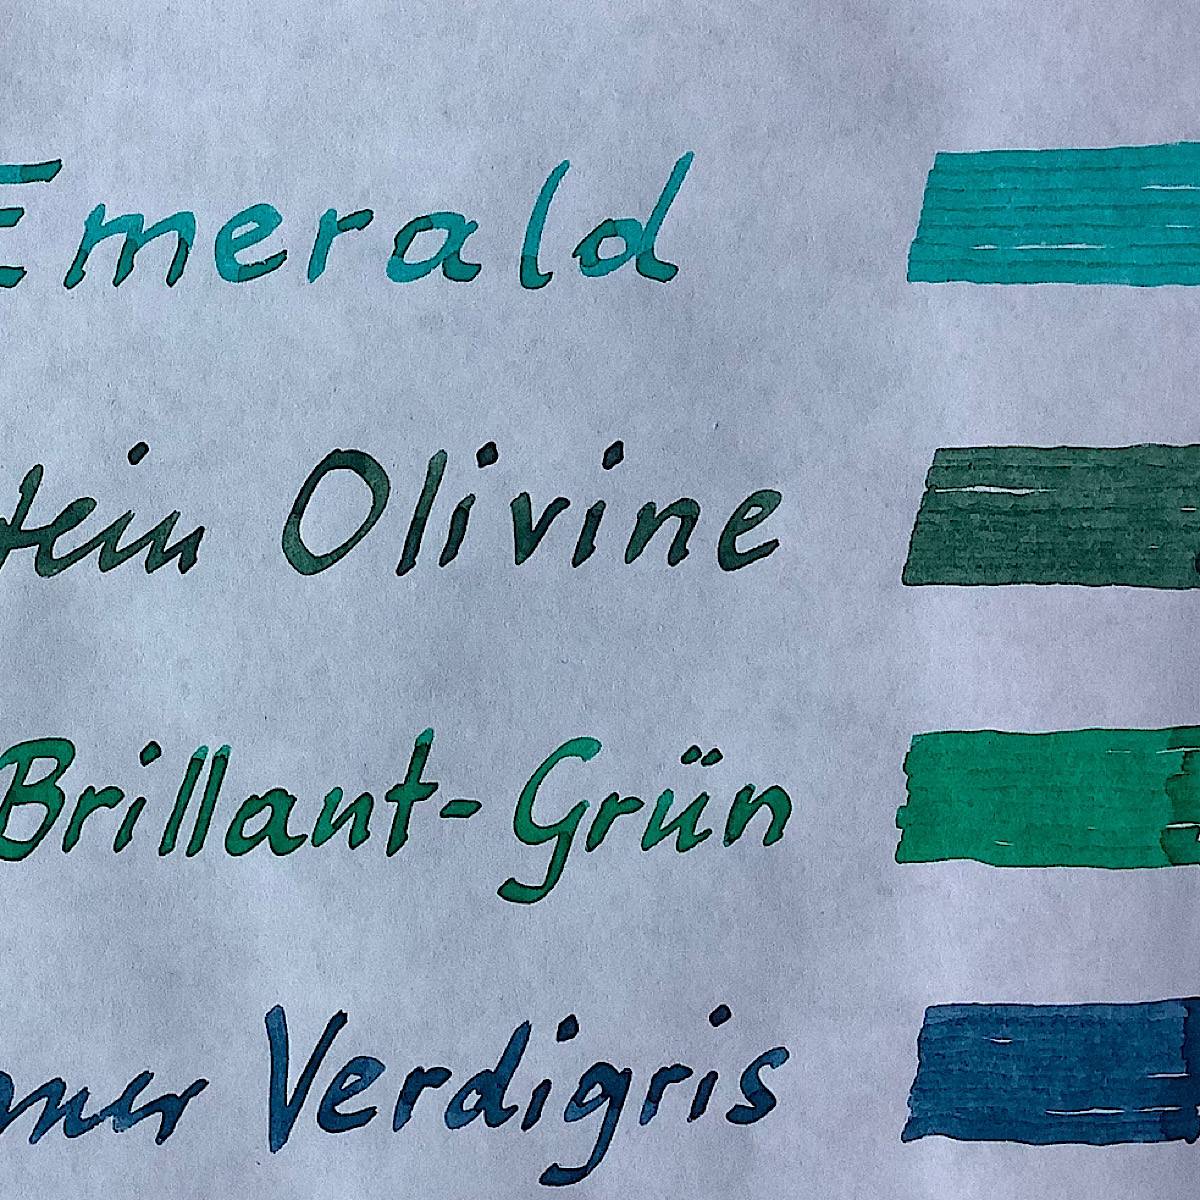 Emerald
tein Olivine
Brillant-Grün
Verdigris